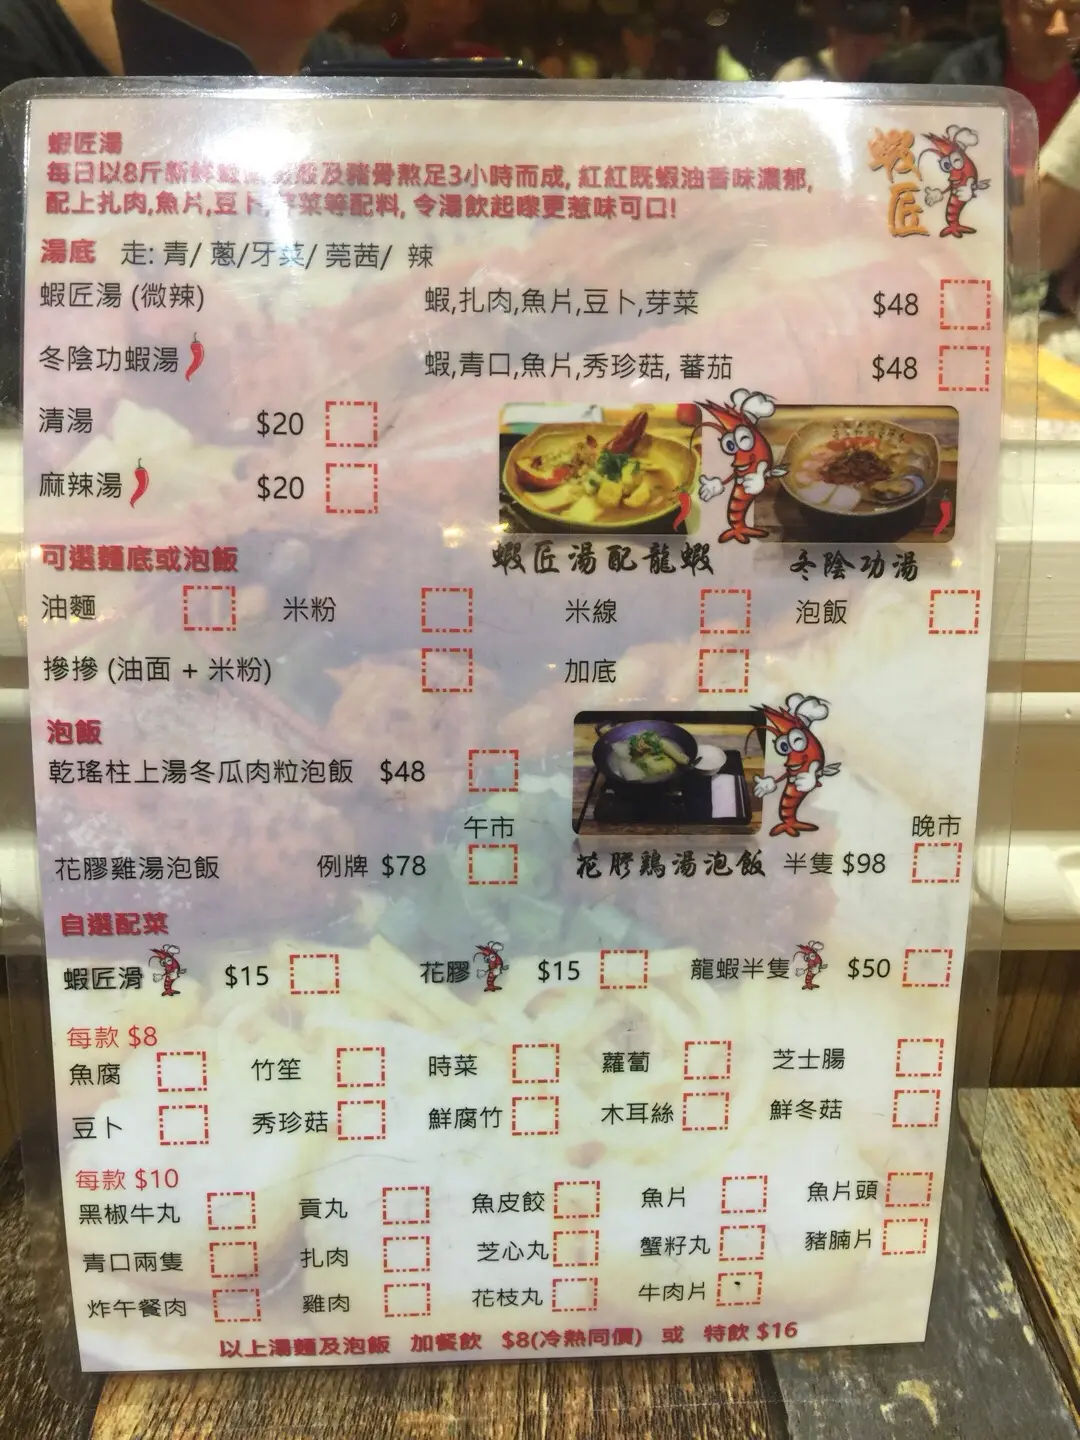 蝦匠湯
每日以8斤新鮮蝦 及豬骨熬足3小時而成, 紅紅既蝦油香味濃郁,
配上扎肉,魚片,豆卜,芽菜等配料, 令湯飲起嚟更惹味可口!
蝦匠
湯底 走: 青/ 蔥/牙菜/ 莞茜/ 辣
蝦匠湯 (微辣) 蝦,扎肉,魚片,豆卜,芽菜 $48
冬陰功蝦湯 蝦,青口,魚片,秀珍菇, 蕃茄 $48
清湯 $20
麻辣湯 $20
蝦匠湯配龍蝦 冬陰功湯
可選麵底或泡飯
油麵 米粉 米線 泡飯
摻摻 (油面 + 米粉) 加底
泡飯
乾瑤柱上湯冬瓜肉粒泡飯 $48
午市 晚市
花膠雞湯泡飯 例牌 $78 花膠鷄湯泡飯 半隻 $98
自選配菜
蝦匠滑 $15 花膠 $15 龍蝦半隻 $50
每款 $8
魚腐 竹笙 時菜 蘿蔔 芝士腸
豆卜 秀珍菇 鮮腐竹 木耳絲 鮮冬菇
每款 $10
黑椒牛丸 貢丸 魚皮餃 魚片 魚片頭
青口兩隻 扎肉 芝心丸 蟹籽丸 豬腩片
炸午餐肉 雞肉 花枝丸 牛肉片
以上湯麵及泡飯 加餐飲 $8(冷熱同價) 或 特飲 $16